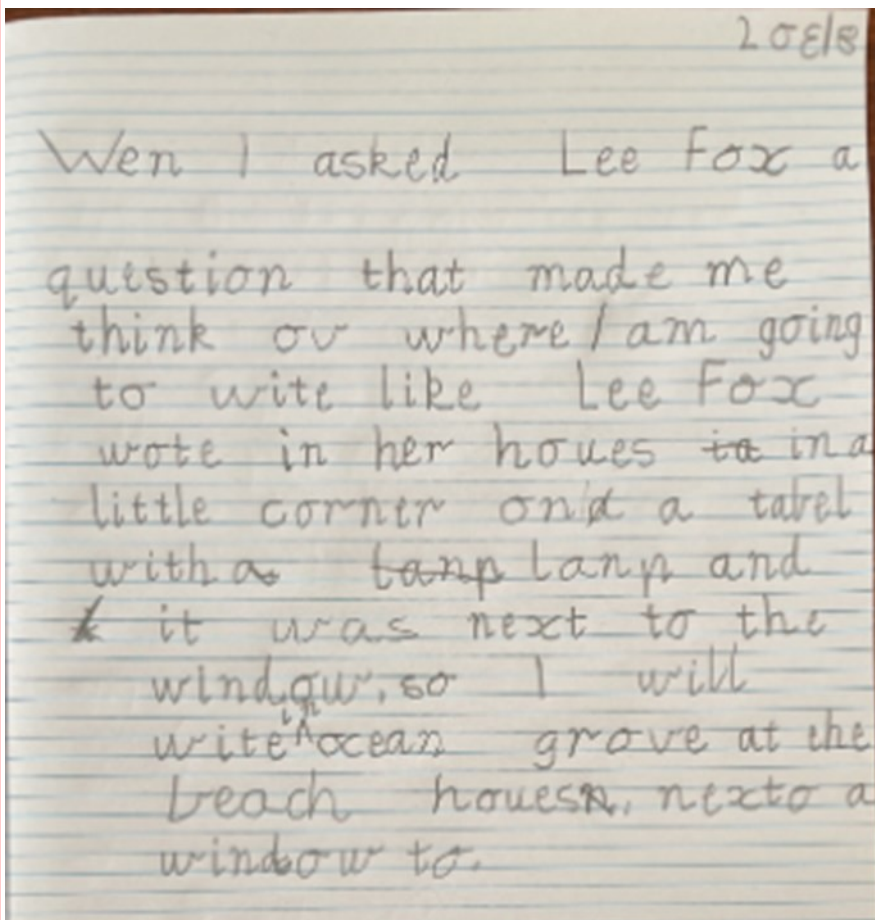 Wen I asked Lee Fox a
question that made me
think ov where I am going
to wite like Lee Fox
wote in her houes in a
little corner on a tabel
with a lanp and
it was next to the
window, so I will
wite in ocean grove at the
beach houes, nexto a
window to.